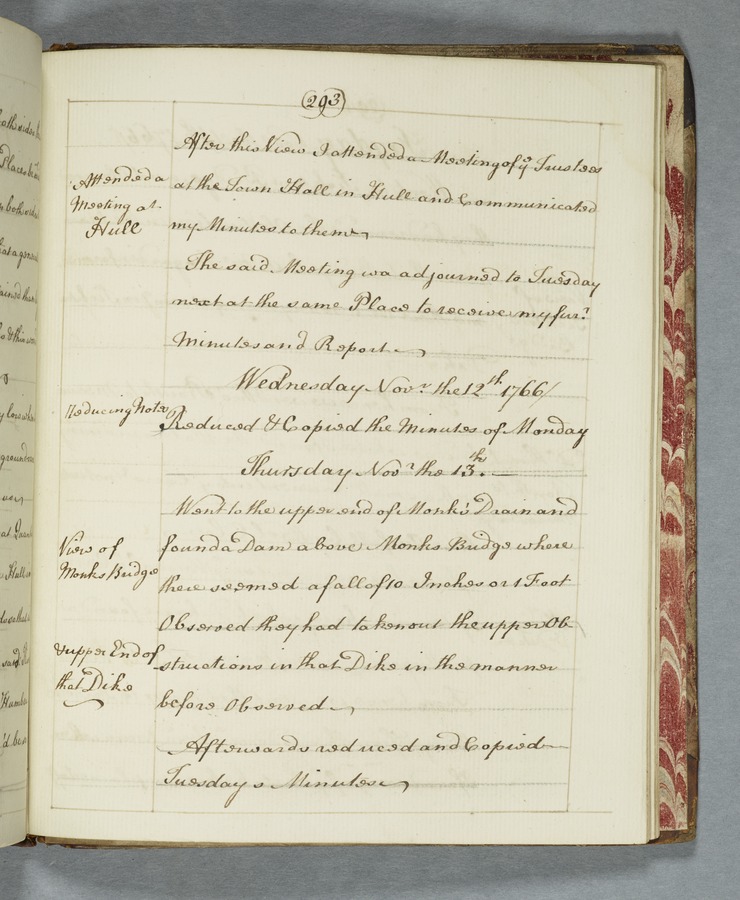 293
After this View I attended a Meeting of yͤ Trustees
Attended a
Meeting at
Hull
at the Town Hall in Hull and Communicated
my Minutes to them
The said Meeting wa adjourned to Tuesday
next at the same Place to receive my furr.
Minutes and Report
Wednesday Novr. the 12th. 1766/
Reducing Notes
Reduced & Copied the Minutes of Monday
Thursday Novr. the 13th.
Went to the upper end of Monk's Drain and
View of
Monks Bridge
found a Dam above Monks Bridge where
there seemed a fall of 10 Inches or 1 Foot
Observed they had taken out the upper Ob-
& upper End of
that Dike
structions in that Dike in the manner
before Observed
Afterwards reduced and Copied
Tuesday s Minutes